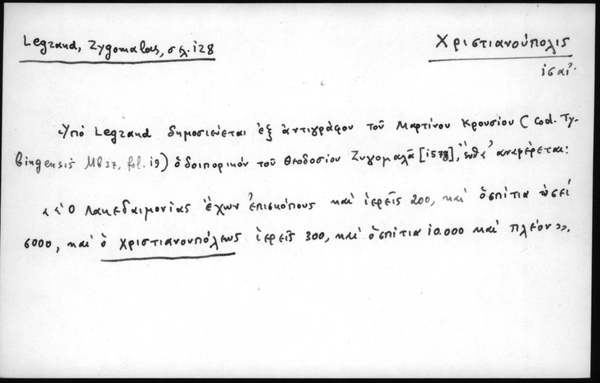 Legrand, Zygomalas, σελ. 128
Χριστιανούπολις
ις αἰ.
Ὑπό Legrand δημοσιεύεται ἐξ ἀντιγράφου τοῦ Μαρτίνου Κρουσίου (cod. Ty-
bingensis Mb 37, fol. 19) ὁδοιπορικόν τοῦ Θεοδοσίου Ζυγομαλᾶ [1578], ἔνθα ἀναφέρεται:
«Ὁ Λακεδαιμονίας ἔχων ἐπισκόπους καί ἱερεῖς 200, καί ὁσπίτια ὡσεί
6000, καί ὁ Χριστιανουπόλεως ἱερεῖς 300, καί ὁσπίτια 10.000 καί πλέον».